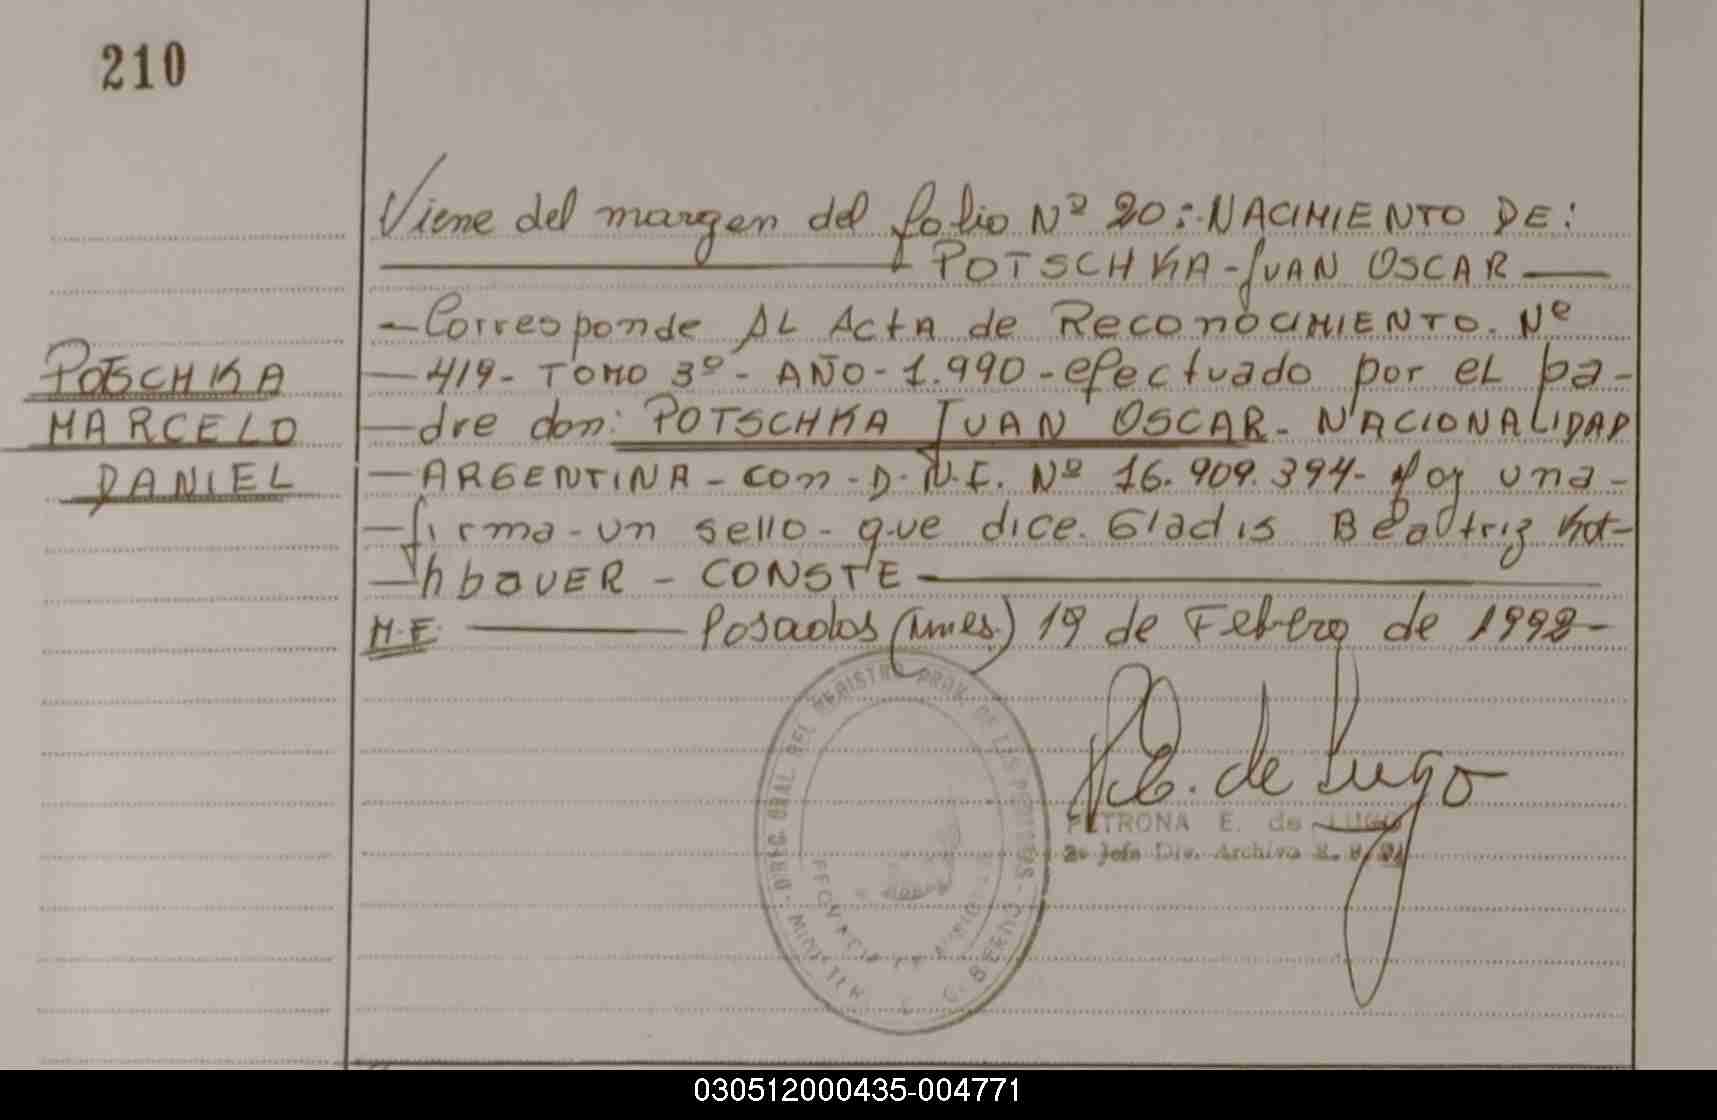 210
POTSCHKA
MARCELO
DANIEL
Viene del margen del folio Nº 20:-NACIMIENTO DE:
POTSCHKA-JUAN OSCAR
-Corresponde AL ActA de ReconocIMIENTO. Nº
-419- TOMO 3º- AÑO-1.990-efectuado por eL pa-
-dre don: POTSCHKA JUAN OSCAR- NACIONALIDAD
-ARGENTINA-con-D.N.I. Nº 16.909.394- Hay una-
-firma-un sello-que dice. Gladis Beatriz Rot-
-hbaUER-CONSTE
M.E. Posadas (Mnes.) 19 de Febrero de 1992-
P.E. de Lugo
PETRONA E. de LUGO
2º Jefe Div. Archivo R.P.P.
DIREC. GRAL. DEL REGISTRO PROV. DE LAS PERSONAS - MINISTERIO DE GOBIERNO
030512000435-004771